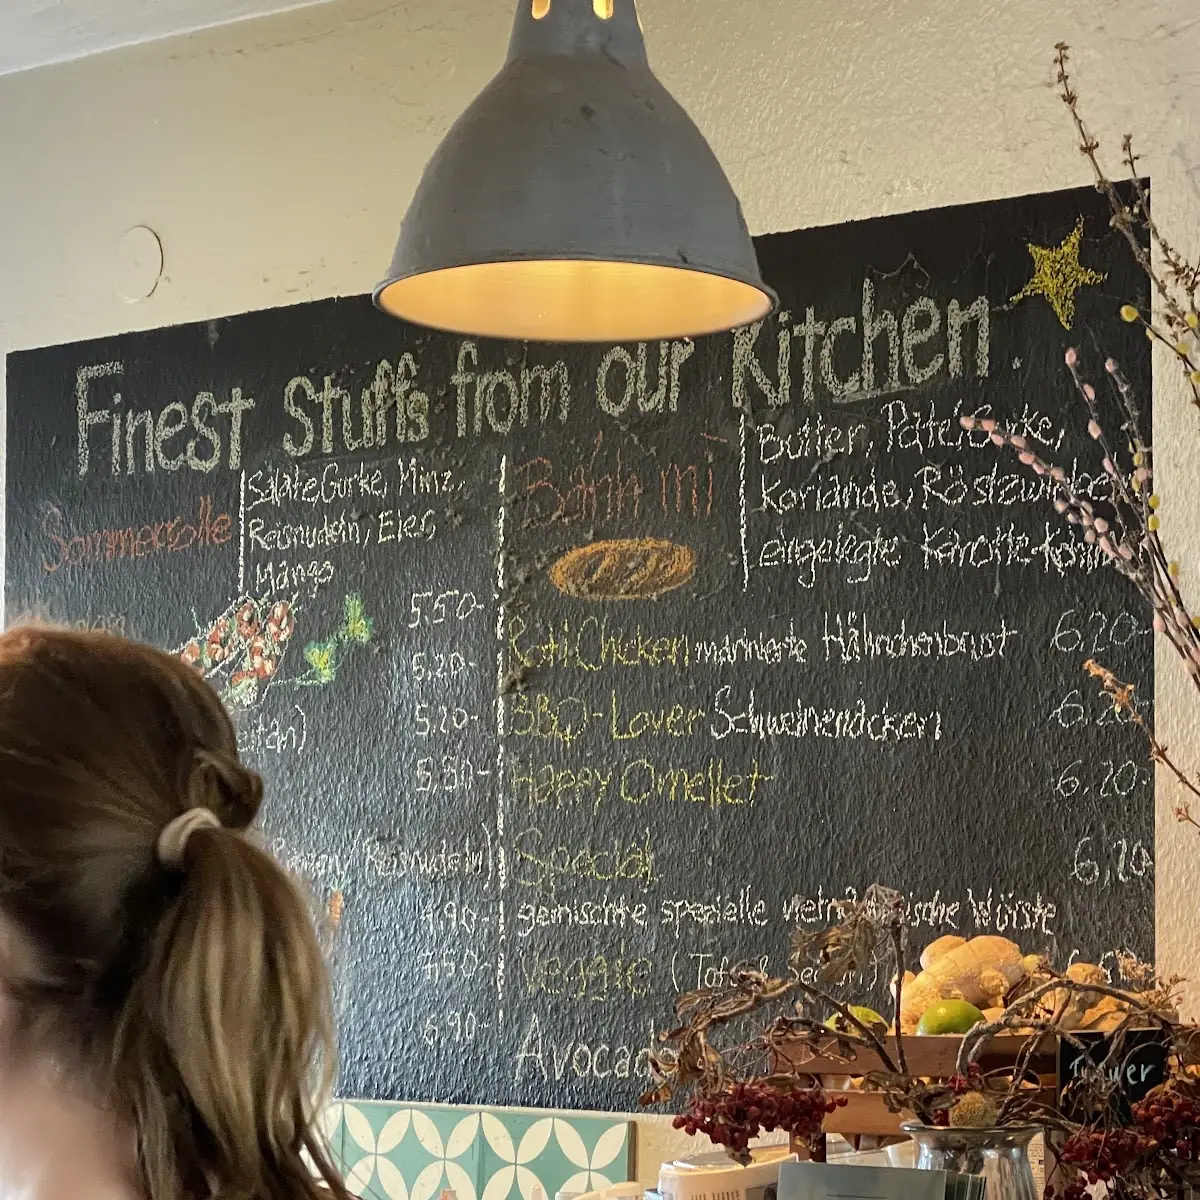 Finest Stuffs from our Kitchen.
Sommerrolle
Salate Gurke, Minz,
Reisnudeln, Eier,
Mango
5.50-
5.20-
5.20-
5.50-
Reisnudeln)
4.90-
7.50-
6.90-
Bánh mì
Butter, Pate, Gurke,
Koriande, Röstzwiebe
eingelegte Karotte-Kohl
Roti Chicken marinierte Hähnchenbrust 6.20-
BBQ-Lover Schweinenacken 6.20
Happy Omellet 6.20-
Special 6,20
gemischte spezielle vietnamesische Würste
Veggie (Tofu &
Avocado